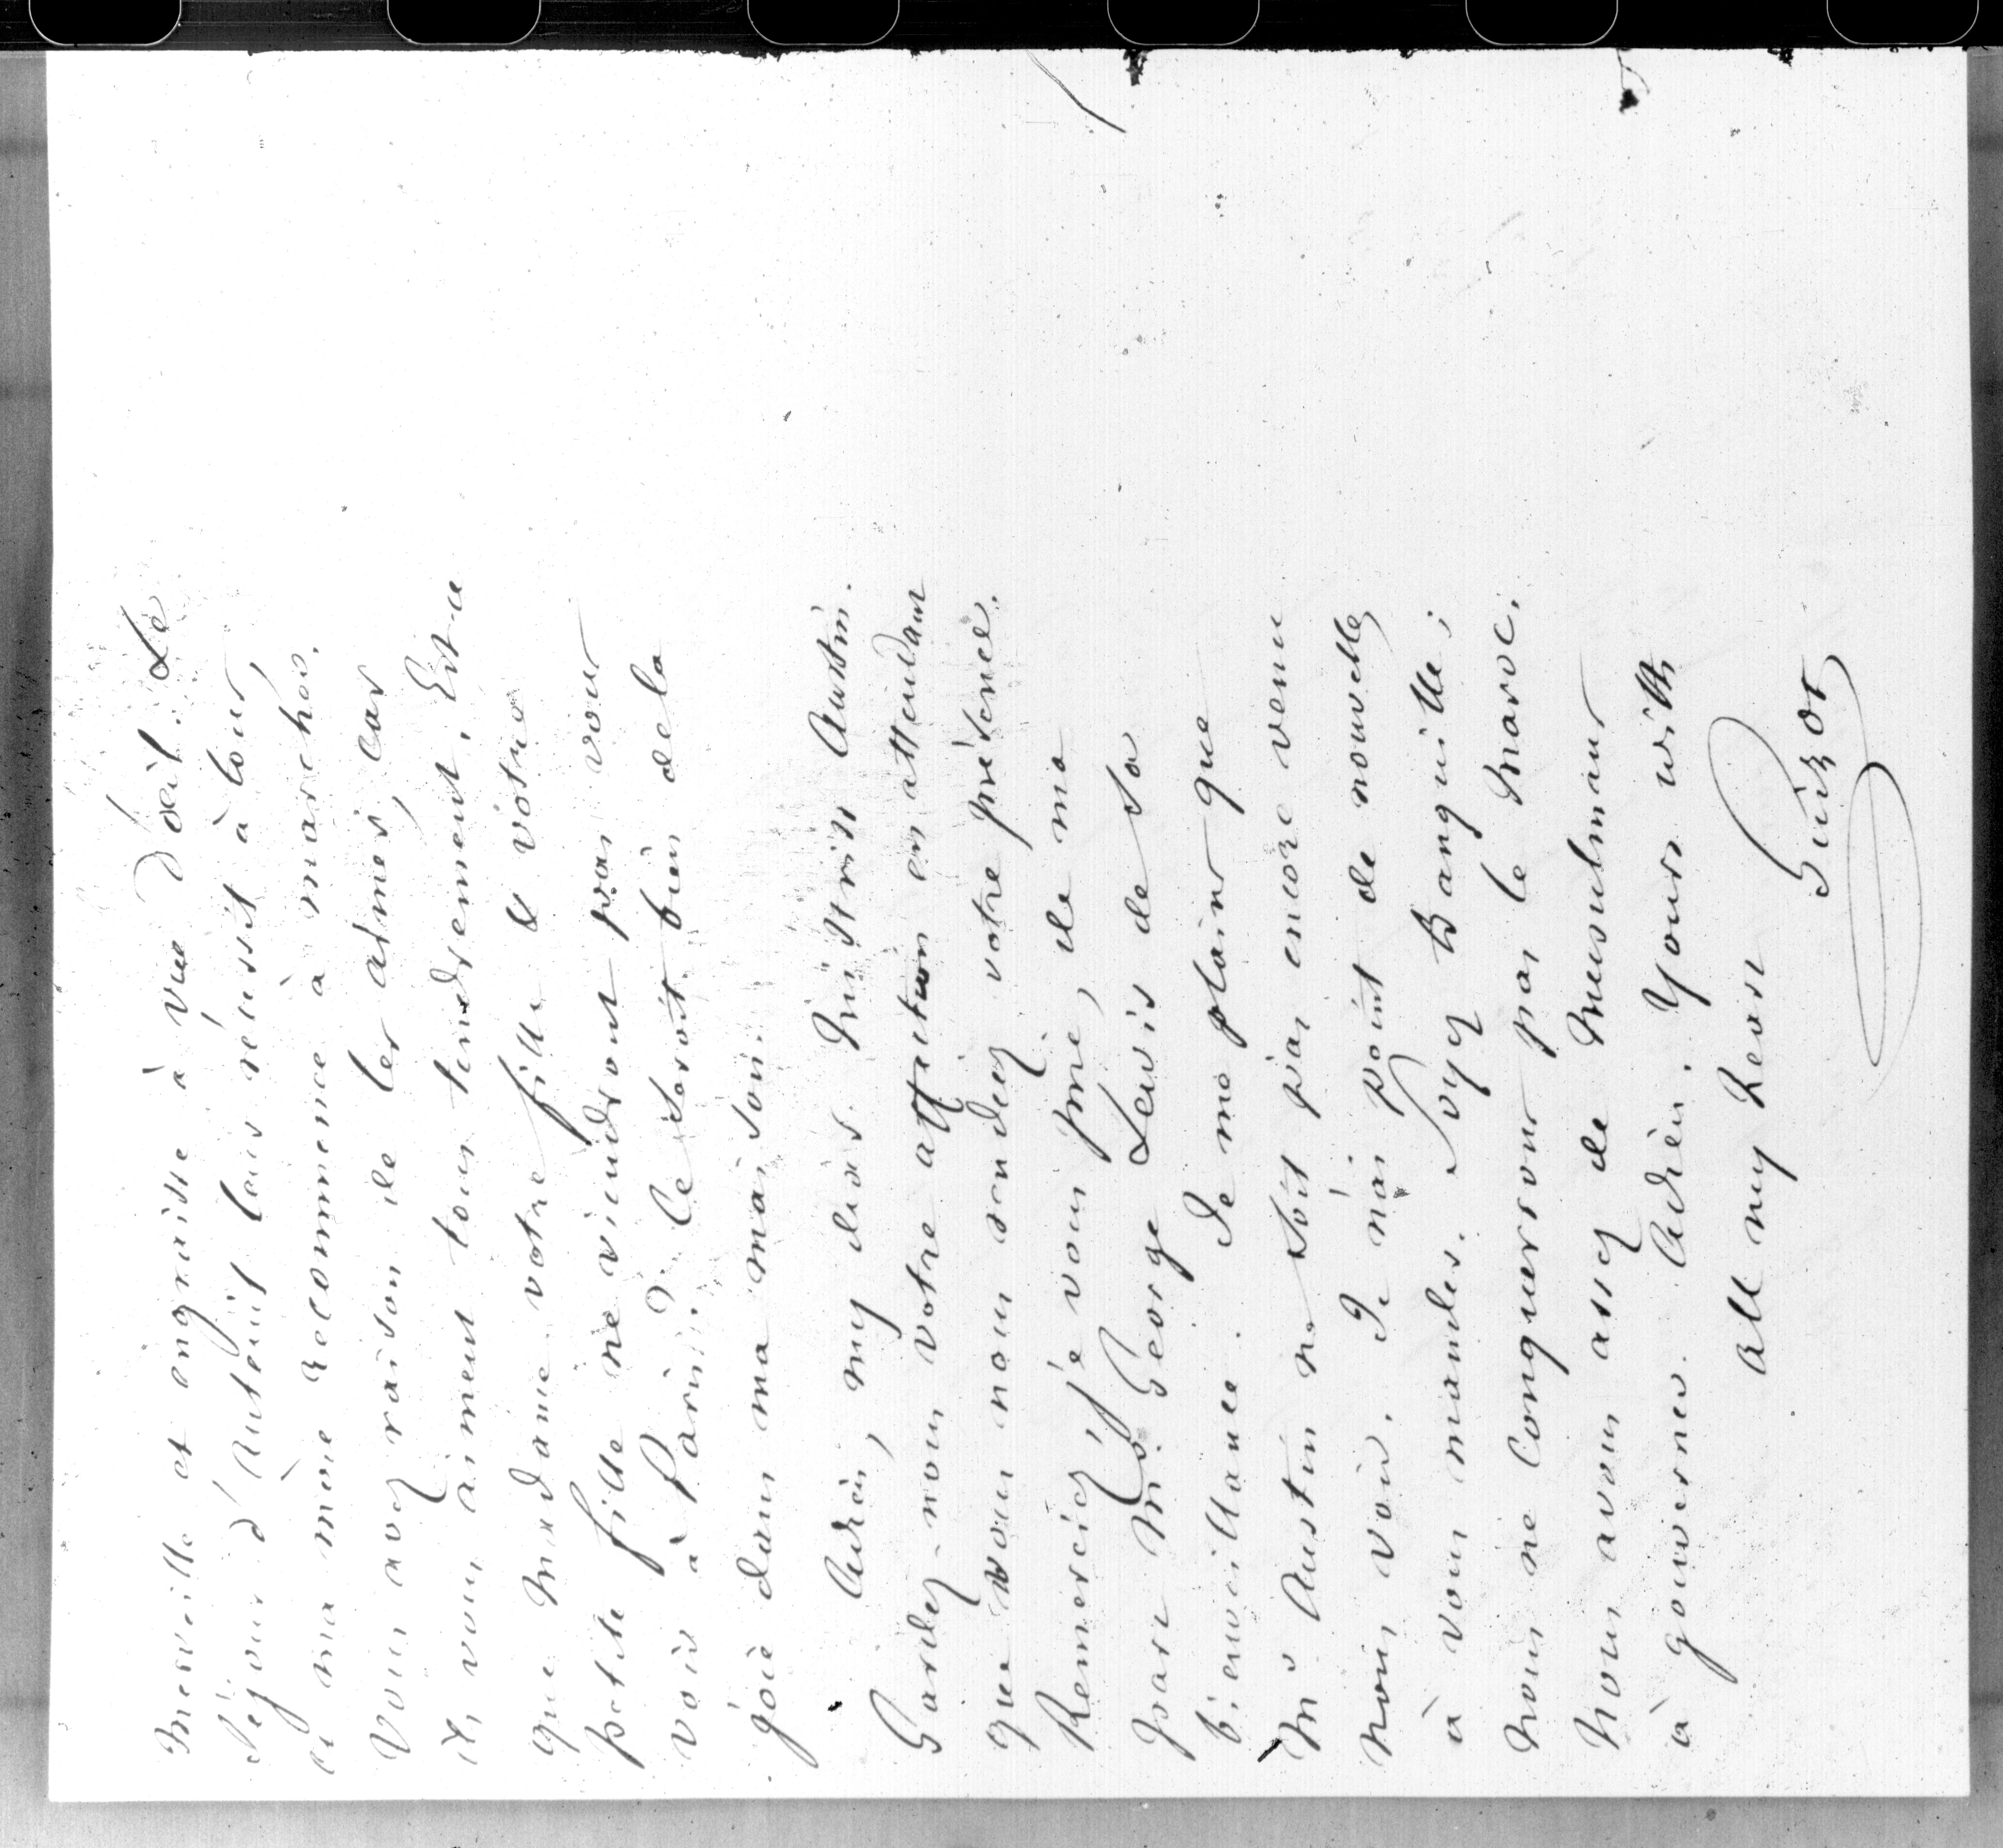 merveille et engraisse à vue d'œil. Le
séjour d'Auteuil leur réussit à tous,
et ma mère recommence à marcher.
Vous avez raison de les aimer, car
ils vous aiment tous tendrement. Est-ce
que Madame votre fille & votre
petite fille ne viendront pas vous
voir à Paris? Ce seroit bien de la
joie dans ma maison.
Adieu, my dear Mistriss Austin.
Gardez-nous votre affection en attendant
que vous nous rendiez votre présence.
Remerciez, je vous prie, de ma
part Mr. George Lewis de sa
bienveillance. Je me plains que
Mrs Austin ne soit pas encore venu
nous voir. Je n'ai point de nouvelles
à vous mander. Soyez tranquille;
nous ne conquerrons pas le Maroc.
Nous avons assez de Musulmans
à gouverner. Adieu. Yours with
all my heart
Guizot